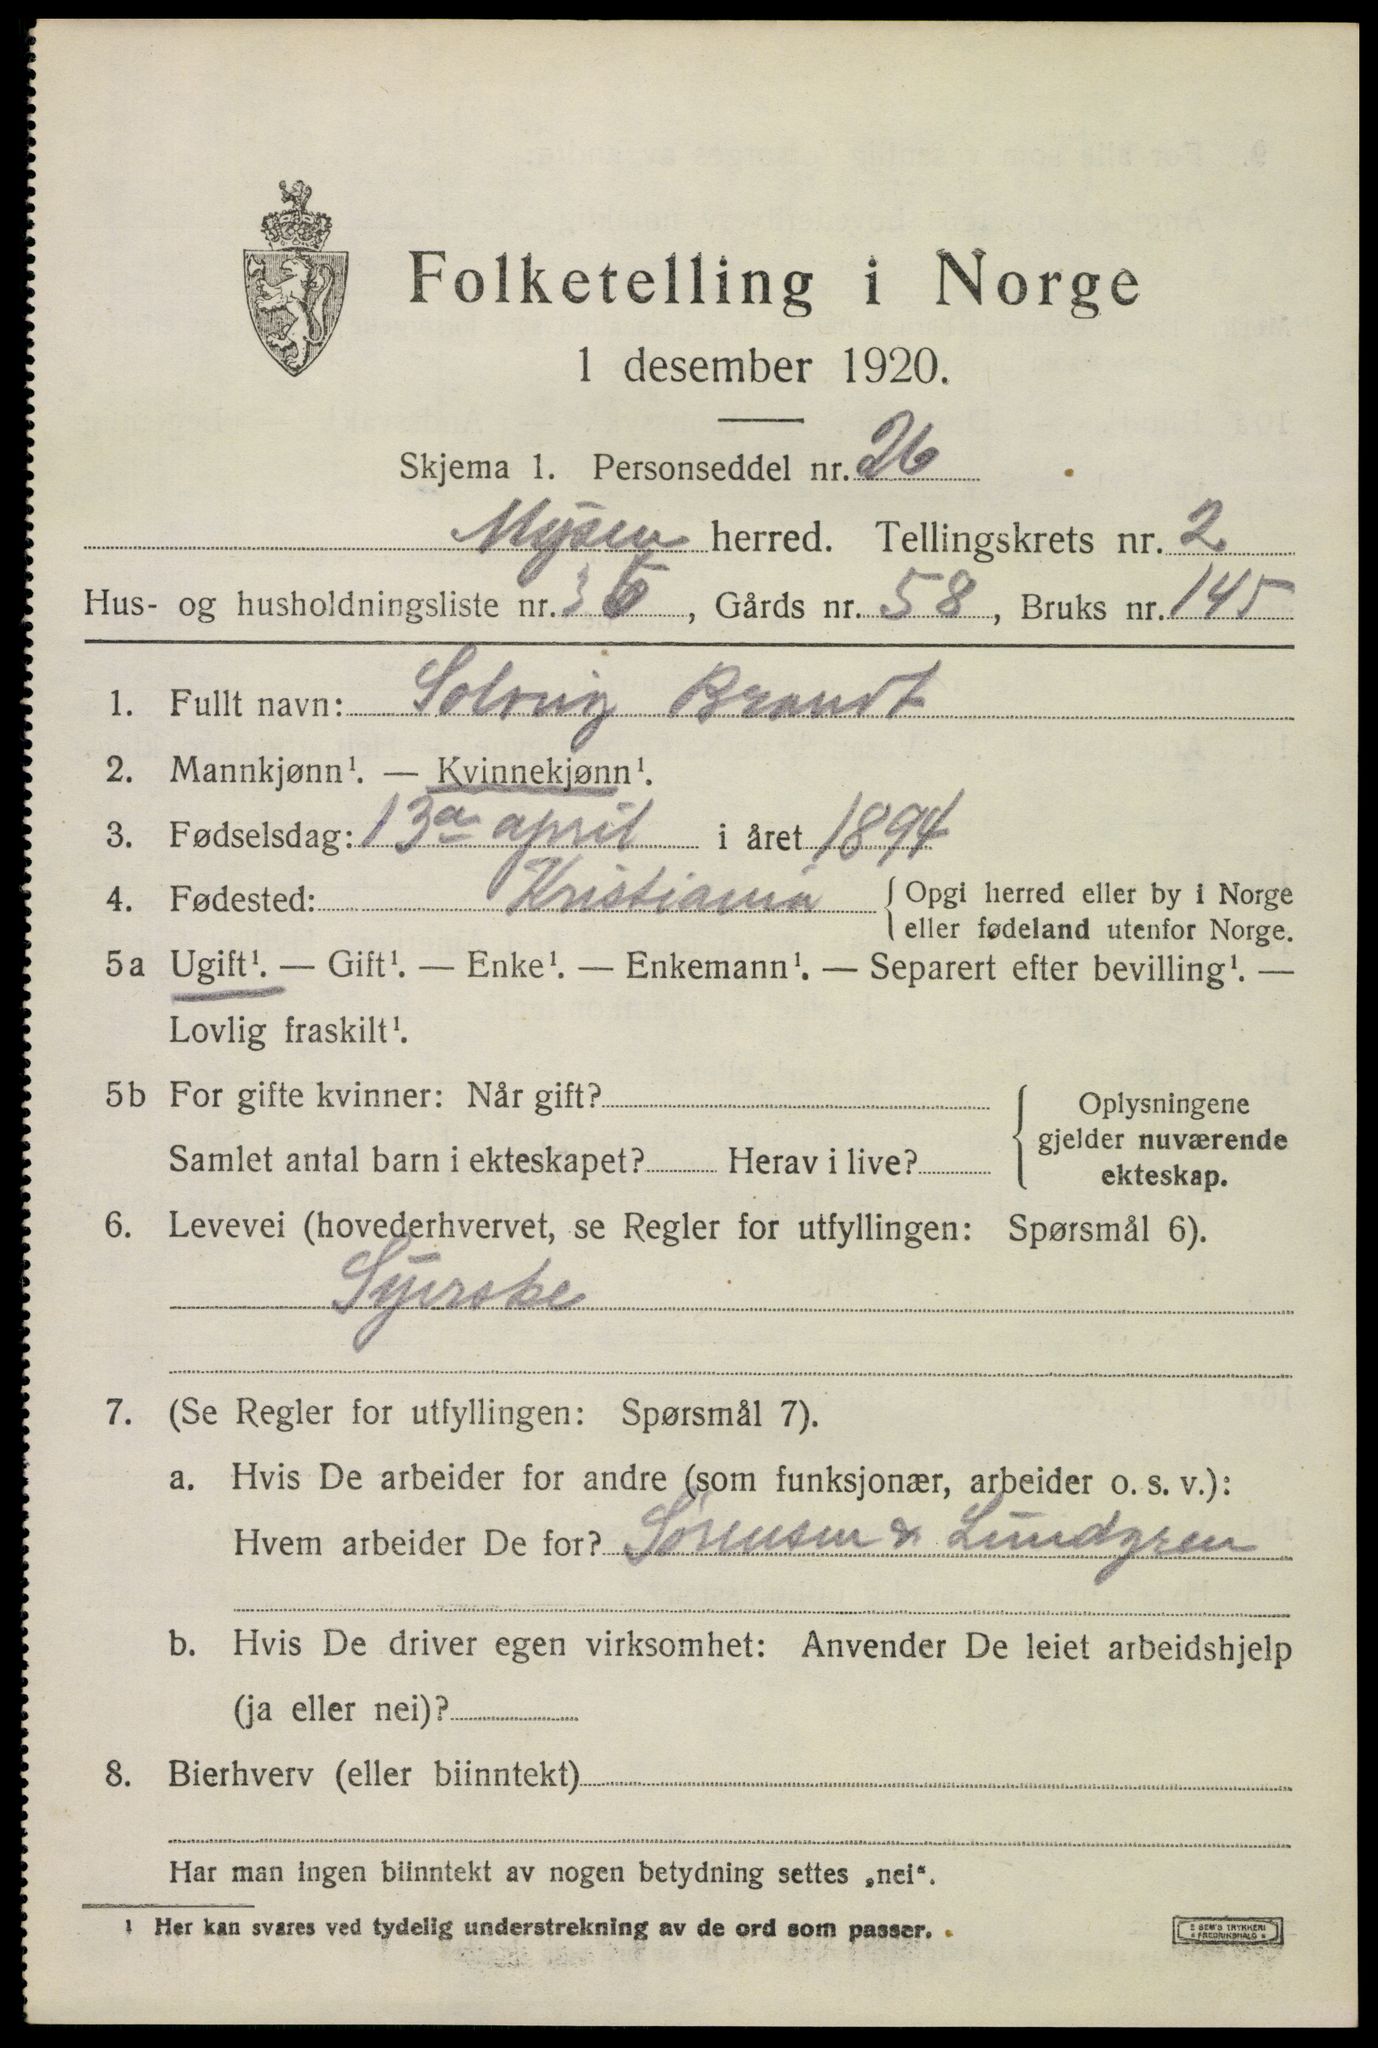 Folketelling i Norge
1 desember 1920.
Skjema 1. Personseddel nr. 26
Mysen herred. Tellingskrets nr. 2
Hus- og husholdningsliste nr. 36, Gårds nr. 58, Bruks nr. 145
1. Fullt navn: Solveig Brandt
2. Mannkjønn¹. — Kvinnekjønn¹.
3. Fødselsdag: 13de april i året 1894
4. Fødested: Kristiania { Opgi herred eller by i Norge
eller fødeland utenfor Norge.
5a Ugift¹. — Gift¹. — Enke¹. — Enkemann¹. — Separert efter bevilling¹. —
Lovlig fraskilt¹.
5b For gifte kvinner: Når gift?
Samlet antal barn i ekteskapet? Herav i live?
{ Oplysningene
gjelder nuværende
ekteskap.
6. Levevei (hovederhvervet, se Regler for utfyllingen: Spørsmål 6).
Syerske
7. (Se Regler for utfyllingen: Spørsmål 7).
a. Hvis De arbeider for andre (som funksjonær, arbeider o. s. v.):
Hvem arbeider De for? Sørensen & Lundgren
b. Hvis De driver egen virksomhet: Anvender De leiet arbeidshjelp
(ja eller nei)?
8. Bierhverv (eller biinntekt)
Har man ingen biinntekt av nogen betydning settes „nei“.
¹ Her kan svares ved tydelig understrekning av de ord som passer.
E SEM'S TRYKKERI
FREDRIKSHALD